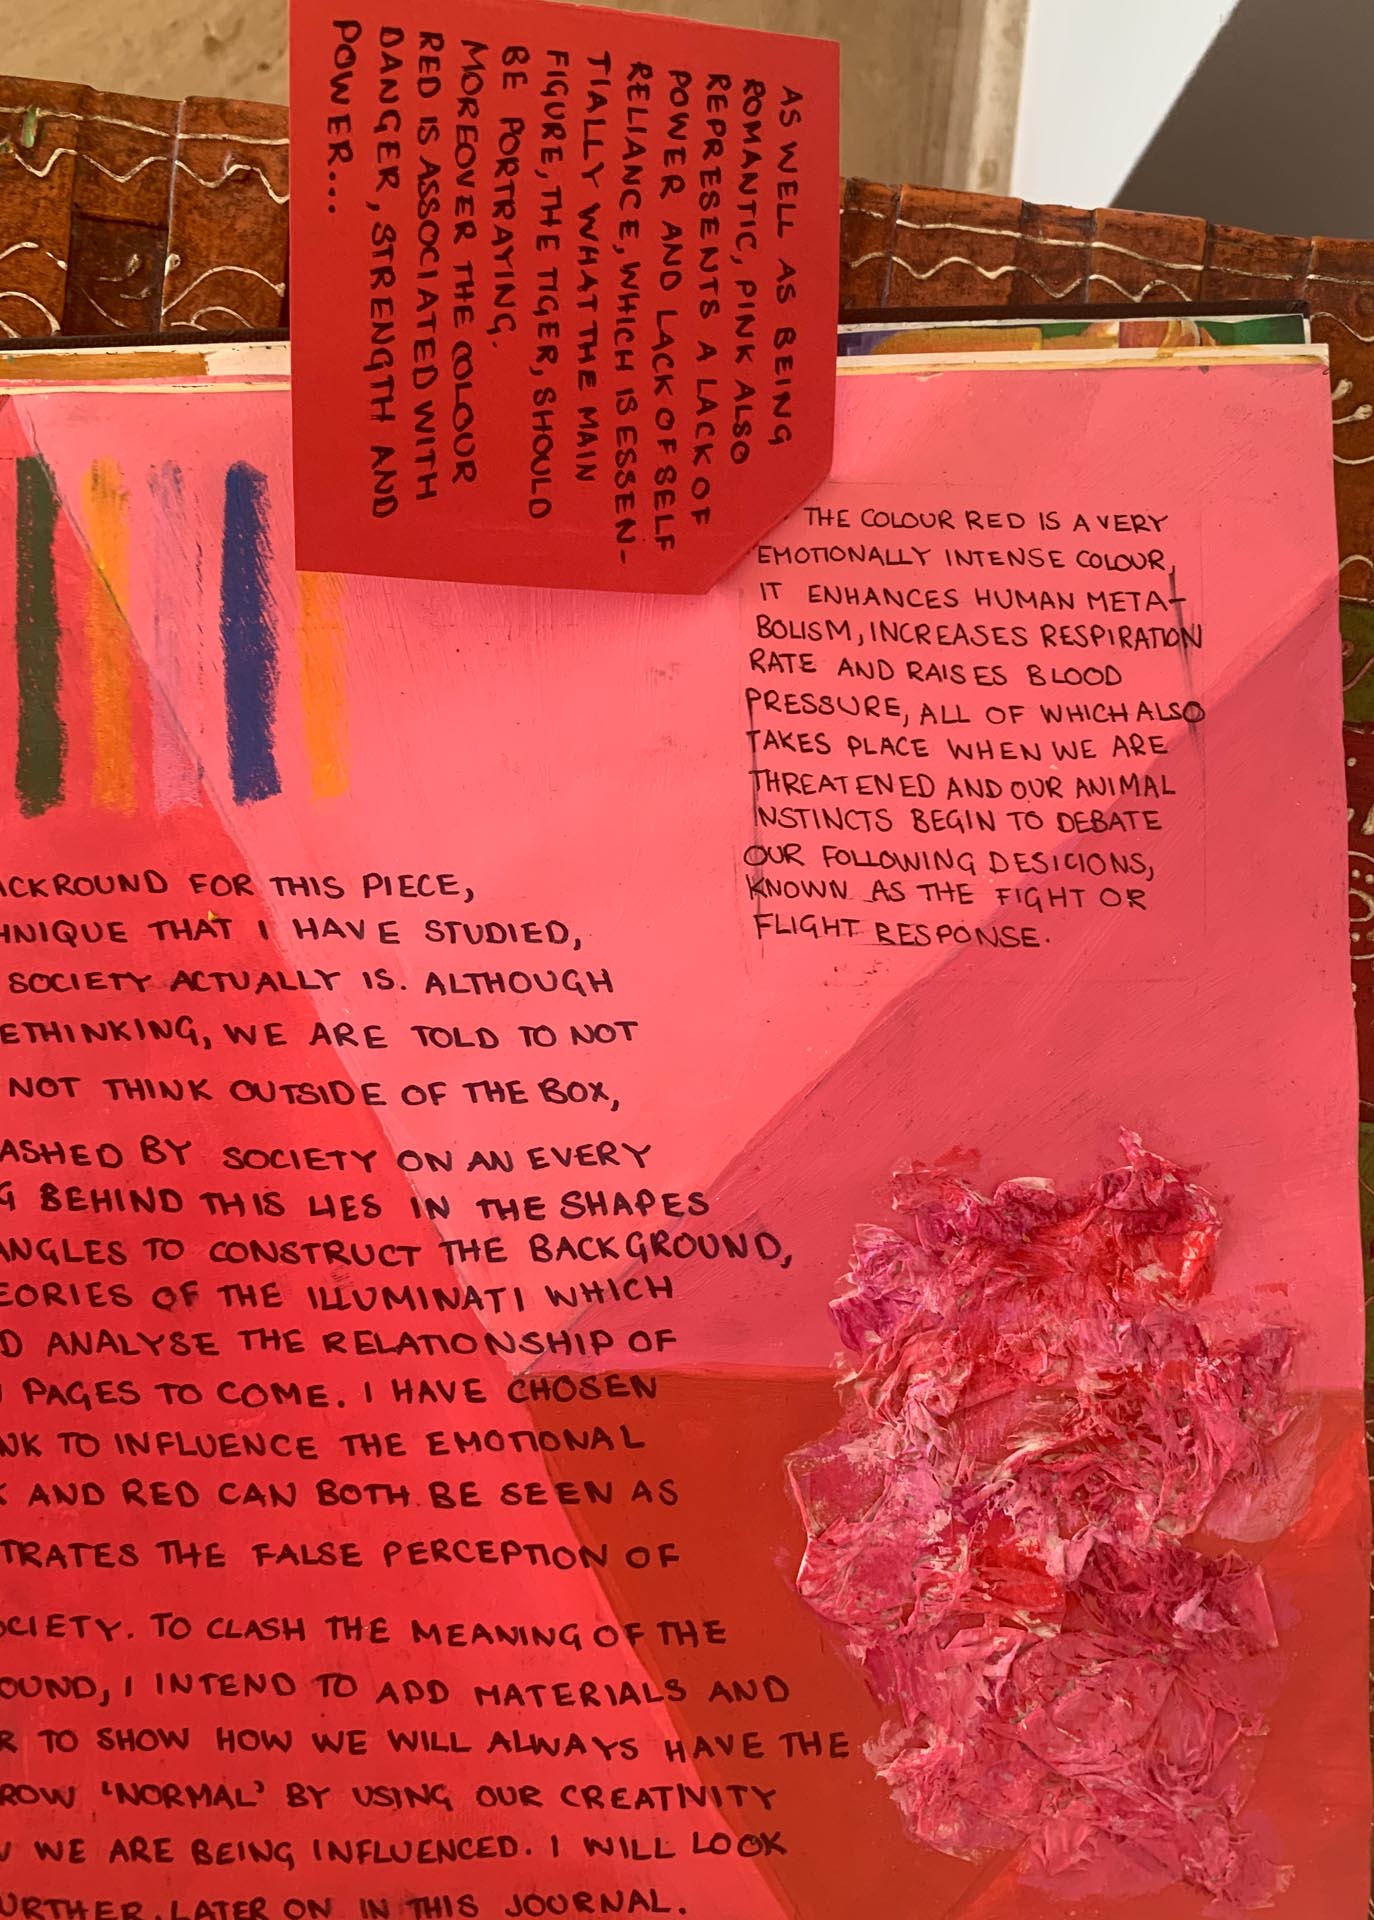 AS WELL AS BEING
ROMANTIC, PINK ALSO
REPRESENTS A LACK OF
POWER AND LACK OF SELF
RELIANCE, WHICH IS ESSEN-
TIALLY WHAT THE MAIN
FIGURE, THE TIGER, SHOULD
BE PORTRAYING.
MOREOVER THE COLOUR
RED IS ASSOCIATED WITH
DANGER, STRENGTH AND
POWER...
THE COLOUR RED IS A VERY
EMOTIONALLY INTENSE COLOUR,
IT ENHANCES HUMAN META-
BOLISM, INCREASES RESPIRATION
RATE AND RAISES BLOOD
PRESSURE, ALL OF WHICH ALSO
TAKES PLACE WHEN WE ARE
THREATENED AND OUR ANIMAL
INSTINCTS BEGIN TO DEBATE
OUR FOLLOWING DESICIONS,
KNOWN AS THE FIGHT OR
FLIGHT RESPONSE.
ACKROUND FOR THIS PIECE,
HNIQUE THAT I HAVE STUDIED,
SOCIETY ACTUALLY IS. ALTHOUGH
ETHINKING, WE ARE TOLD TO NOT
NOT THINK OUTSIDE OF THE BOX,
ASHED BY SOCIETY ON AN EVERY
G BEHIND THIS LIES IN THE SHAPES
ANGLES TO CONSTRUCT THE BACKGROUND,
EORIES OF THE ILLUMINATI WHICH
D ANALYSE THE RELATIONSHIP OF
PAGES TO COME. I HAVE CHOSEN
NK TO INFLUENCE THE EMOTIONAL
K AND RED CAN BOTH BE SEEN AS
TRATES THE FALSE PERCEPTION OF
OCIETY. TO CLASH THE MEANING OF THE
OUND, I INTEND TO ADD MATERIALS AND
R TO SHOW HOW WE WILL ALWAYS HAVE THE
ROW 'NORMAL' BY USING OUR CREATIVITY
WE ARE BEING INFLUENCED. I WILL LOOK
URTHER, LATER ON IN THIS JOURNAL.